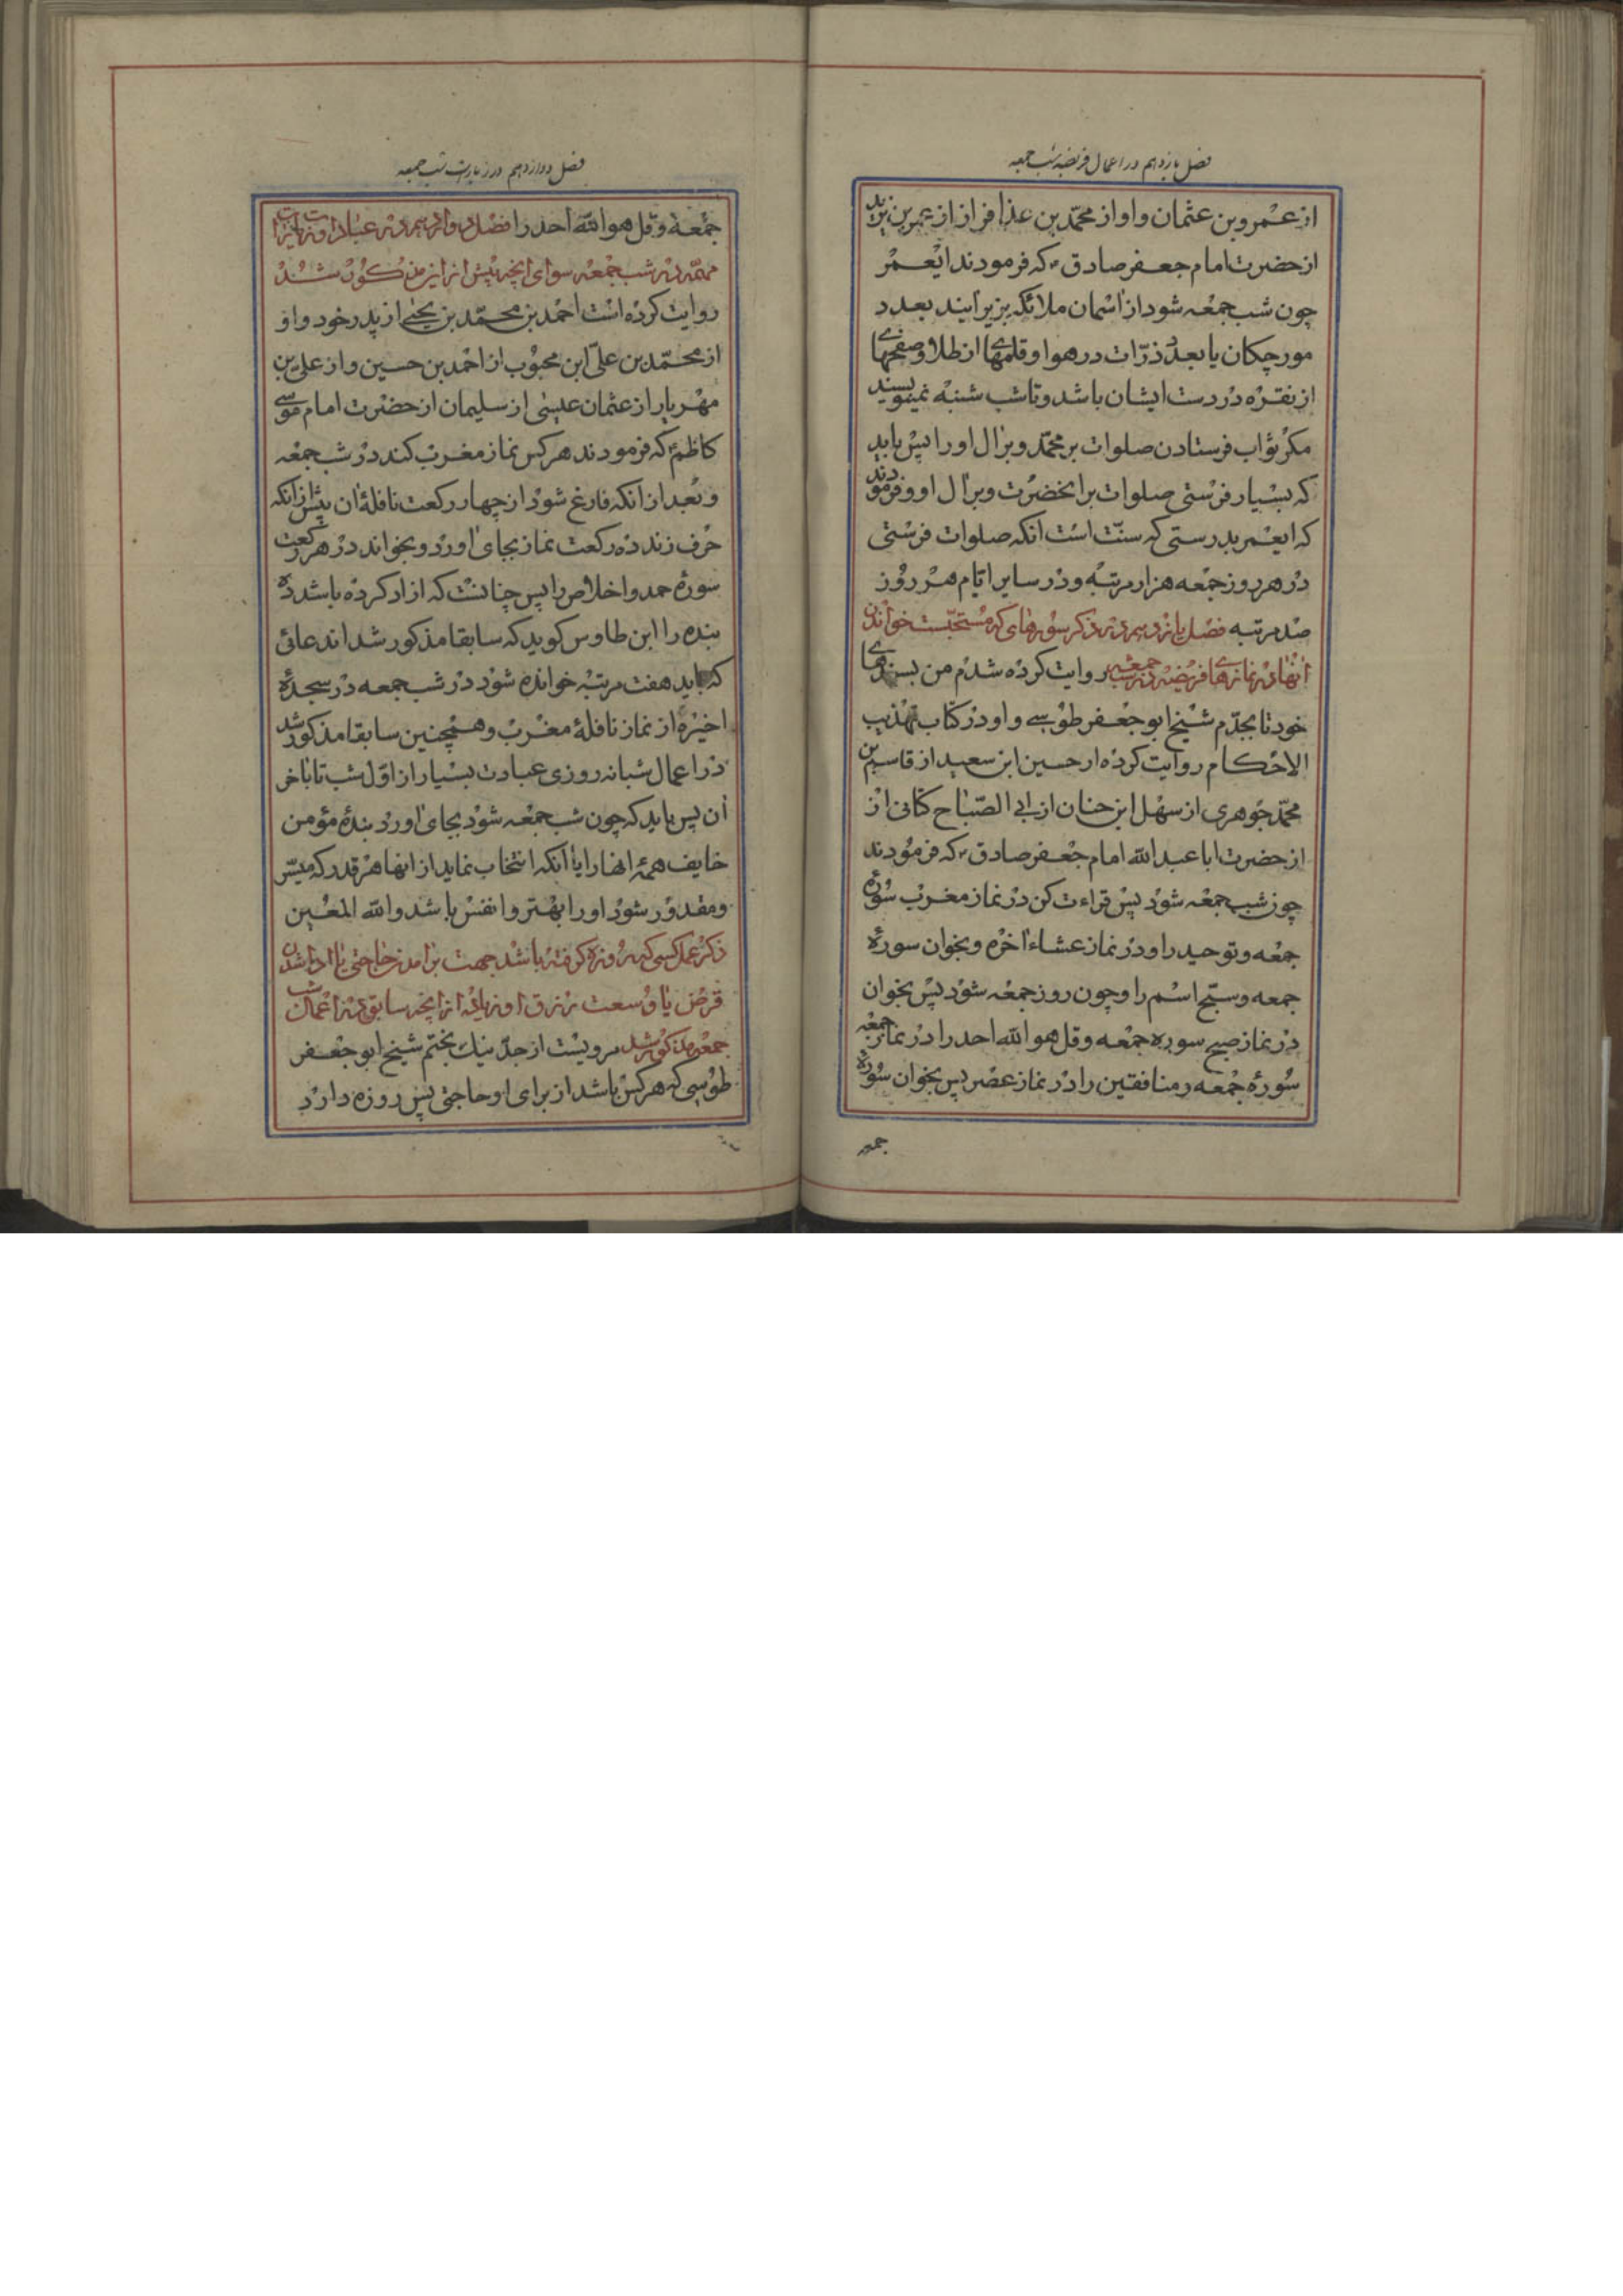 فصل یازدهم در اعمال فریضه شب جمعه
از عمرو بن عثمان و او از محمد بن عذافر از عمر بن یزید
از حضرت امام جعفر صادق ع که فرمودند ایعمر
چون شب جمعه شود از آسمان ملائکه بزیر ایند بعدد
مورچکان یا بعدد ذرّات در هوا و قلمهای از طلا و صفحهای
از نقره در دست ایشان باشد و تا شب شنبه نمینویسند
مکر ثواب فرستادن صلوات بر محمّد و بر ال او را پس باید
که بسیار فرستی صلوات بر انحضرت و بر ال او و فرمودند
که ایعمر بدرستی که سنّت است انکه صلوات فرستی
در هر روز جمعه هزار مرتبه و در سایر ایّام هر روز
صد مرتبه فصل یازدهم در ذکر سورهای که مستحبّست خواندن
انها در نمازهای فریضه در شب جمعه روایت کرده شدم من بسندهای
خود تا بجدّم شیخ ابو جعفر طوسی و او در کتاب تهذیب
الاحکام روایت کرده از حسین ابن سعید از قاسم بن
محمّد جوهری از سهل ابن حنان از ابی الصّباح کنانی از
از حضرت ابا عبد الله امام جعفر صادق ع که فرمودند
چون شب جمعه شود پس قراءت کن در نماز مغرب سورۀ
جمعه و توحید را و در نماز عشاء اخره و بخوان سورۀ
جمعه و سبّح اسم را و چون روز جمعه شود پس بخوان
در نماز صبح سوره جمعه و قل هو الله احد را در نماز جمعه
سورۀ جمعه و منافقین را در نماز عصر پس بخوان سورۀ
جمعه
فصل دوازدهم در زیارت شب جمعه
جمعه و قل هو الله احد را فصل دوازدهم در عبادات و زیارات
مهمّه در شب جمعه سوای انچه پیش از این مذکور شد
روایت کرده است احمد بن محمّد بن یحیی از پدر خود و او
از محمّد بن علیّ ابن محبوب از احمد بن حسین و از علی بن
مهریار از عثمان عیسی از سلیمان از حضرت امام موسی
کاظم ع که فرمودند هر کس نماز مغرب کند در شب جمعه
و بعد از انکه فارغ شود از چهار رکعت نافلۀ ان پیش از انکه
حرف زند ده رکعت نماز بجای اورد و بخواند در هر رکعت
سوره حمد و اخلاص را پس چنانست که ازاد کرده باشد ده
بنده را ابن طاوس کوید که سابقا مذکور شد اند عائی
که باید هفت مرتبه خوانده شود در شب جمعه در سجدۀ
اخیره از نماز نافلۀ مغرب و همچنین سابقا مذکور شد
در اعمال شبانه روزی عبادت بسیار از اوّل شب تا باخر
ان پس باید که چون شب جمعه شود بجای اورد بندۀ مؤمن
خایف همۀ انها را یا انکه انتخاب نماید از انها هر قدر که میسّر
و مقدور شود او را بهتر و انفس باشد والله المعین
ذکر عمل کسی که روزه کرفته باشد جهت برامدن حاجتی یا ادا شدن
قرض یا وسعت رزق او زیاده از انچه سابق در اعمال شب
جمعه مذکور شد مرویست از جدّ نیك بختم شیخ ابو جعفر
طوسی که هر کس باشد از برای او حاجتی پس روزه دارد